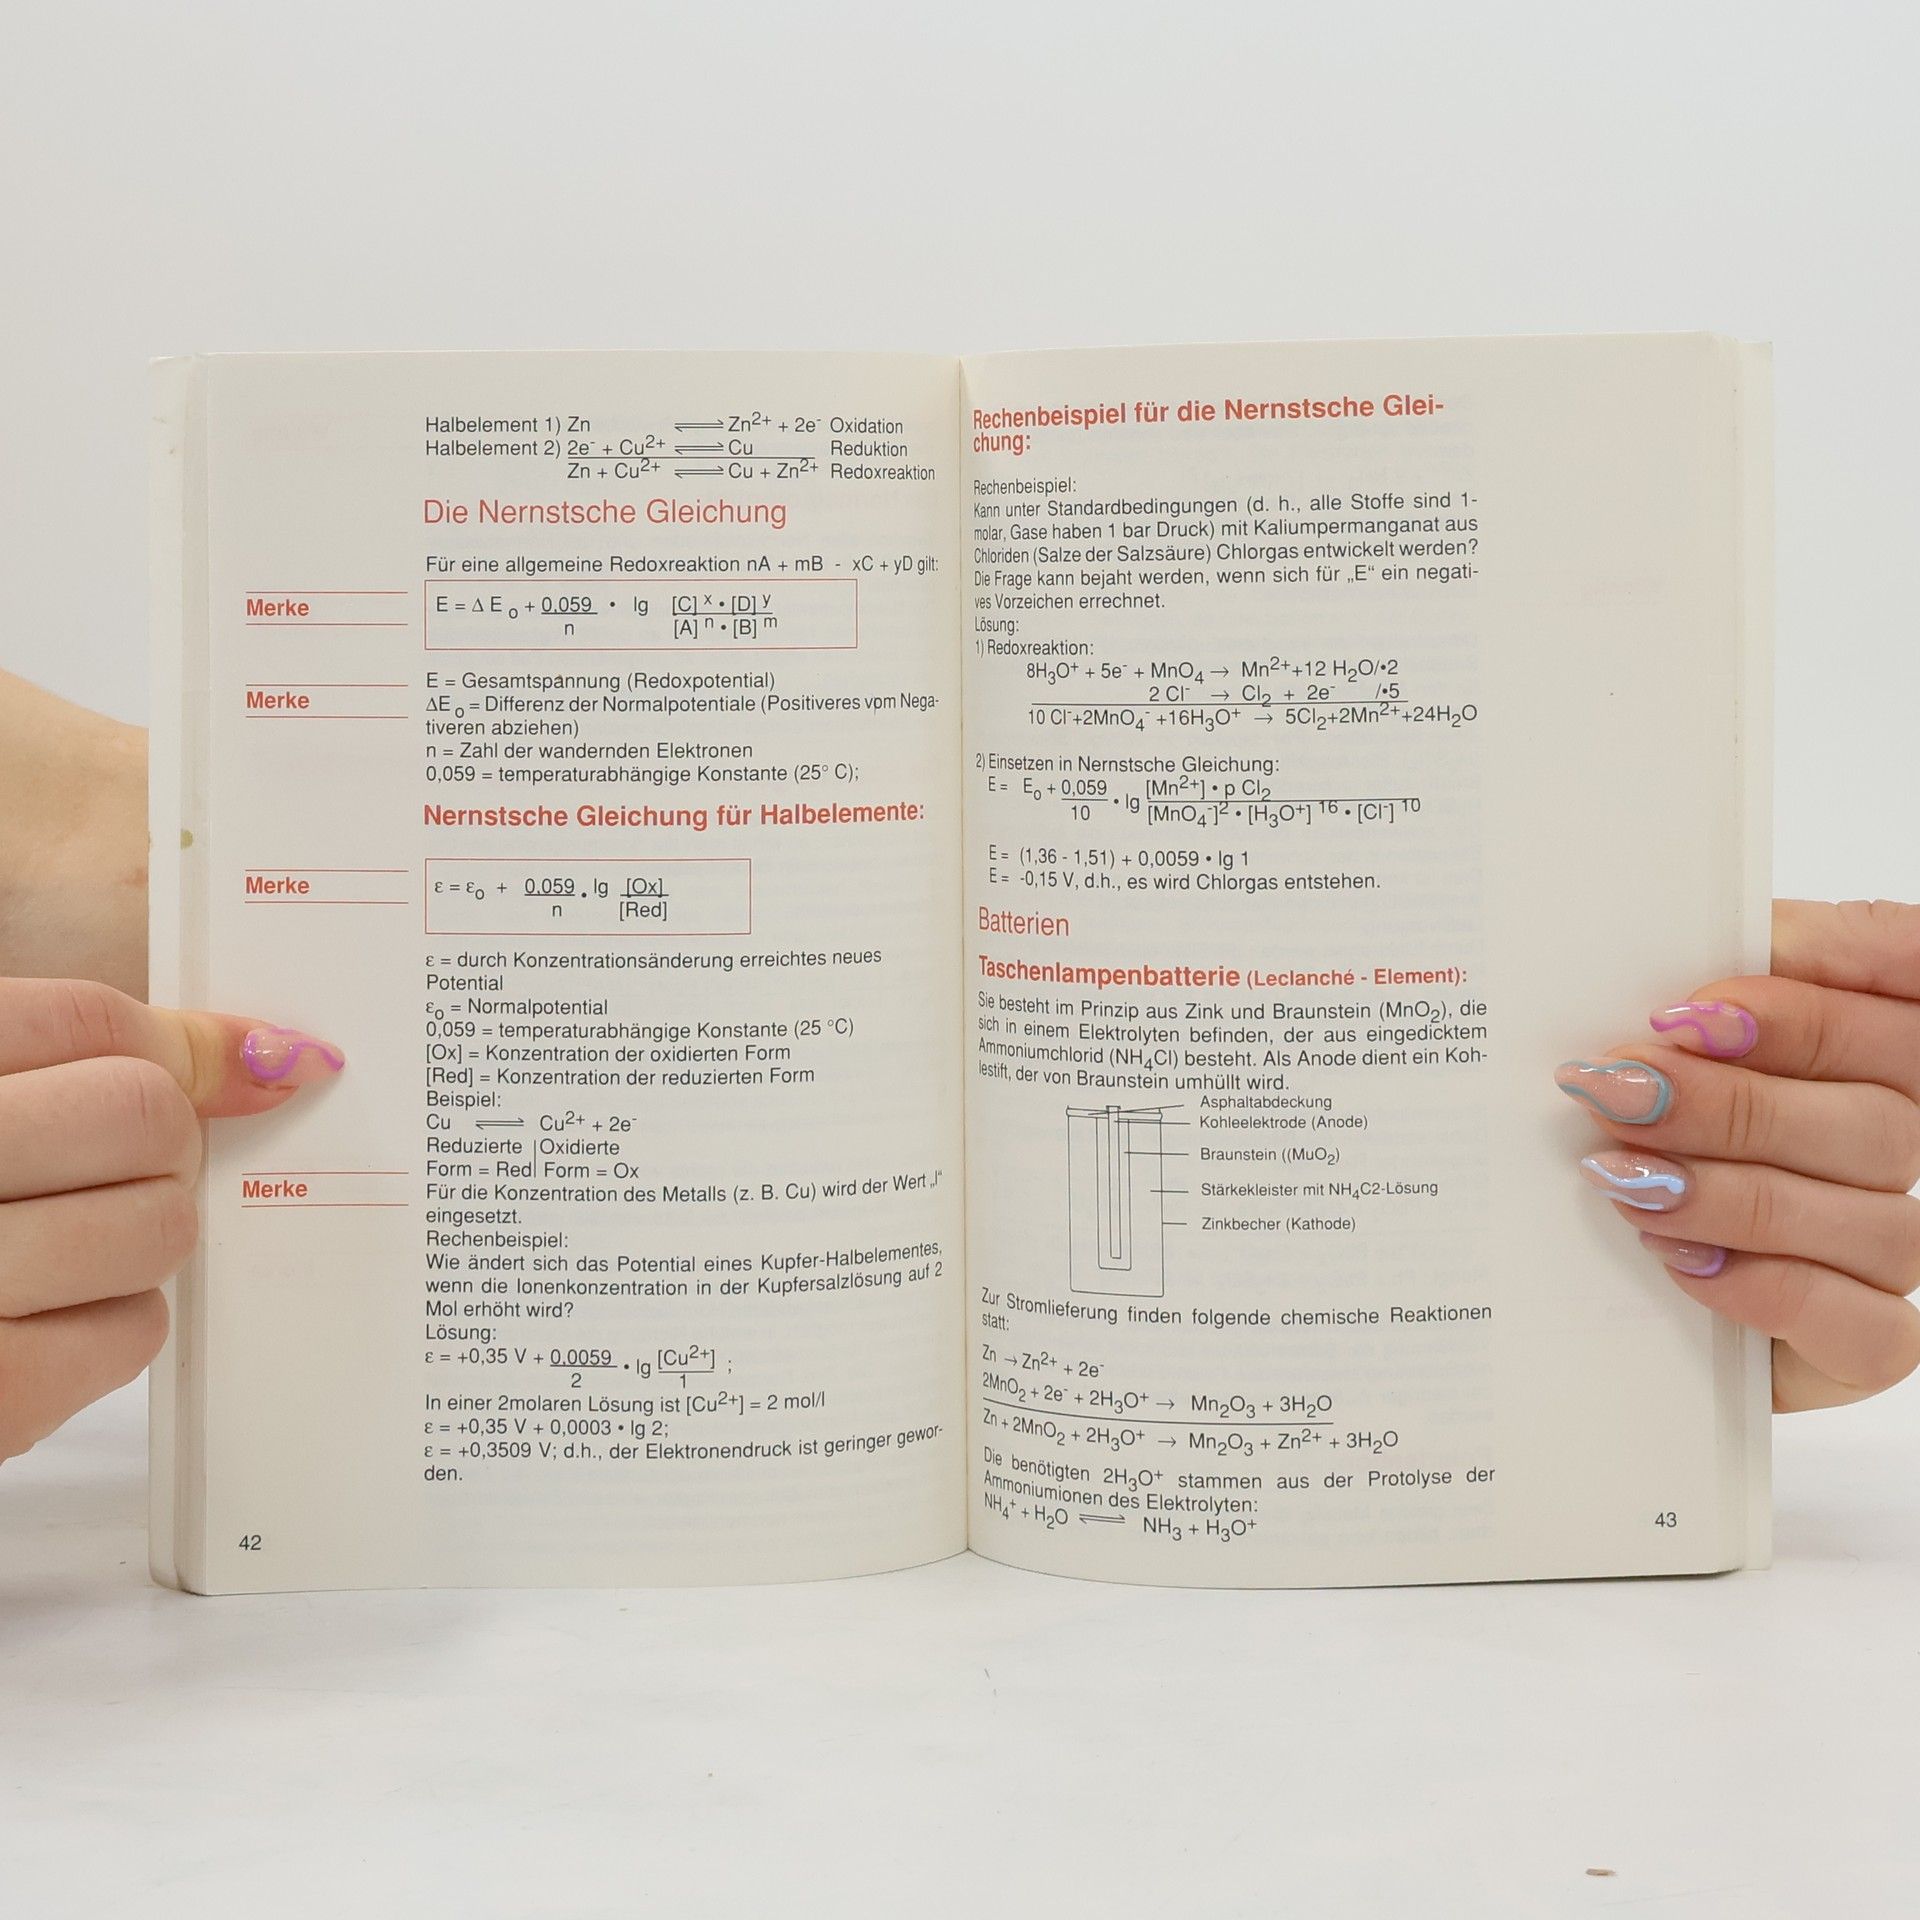 Halbelement 1) Zn ⇌ Zn²⁺ + 2e⁻ Oxidation
Halbelement 2) 2e⁻ + Cu²⁺ ⇌ Cu Reduktion
Zn + Cu²⁺ ⇌ Cu + Zn²⁺ Redoxreaktion
Die Nernstsche Gleichung
Für eine allgemeine Redoxreaktion nA + mB - xC + yD gilt:
Merke
E = Δ E₀ + 0,059/n • lg [C]ˣ • [D]ʸ / [A]ⁿ • [B]ᵐ
Merke
E = Gesamtspannung (Redoxpotential)
ΔE₀ = Differenz der Normalpotentiale (Positiveres vom Nega-
tiveren abziehen)
n = Zahl der wandernden Elektronen
0,059 = temperaturabhängige Konstante (25° C);
Nernstsche Gleichung für Halbelemente:
Merke
ε = ε₀ + 0,059/n • lg [Ox]/[Red]
ε = durch Konzentrationsänderung erreichtes neues
Potential
ε₀ = Normalpotential
0,059 = temperaturabhängige Konstante (25 °C)
[Ox] = Konzentration der oxidierten Form
[Red] = Konzentration der reduzierten Form
Beispiel:
Cu ⇌ Cu²⁺ + 2e⁻
Reduzierte | Oxidierte
Form = Red | Form = Ox
Merke
Für die Konzentration des Metalls (z. B. Cu) wird der Wert „l“
eingesetzt.
Rechenbeispiel:
Wie ändert sich das Potential eines Kupfer-Halbelementes,
wenn die Ionenkonzentration in der Kupfersalzlösung auf 2
Mol erhöht wird?
Lösung:
ε = +0,35 V + 0,0059/2 • lg [Cu²⁺]/1 ;
In einer 2molaren Lösung ist [Cu²⁺] = 2 mol/l
ε = +0,35 V + 0,0003 • lg 2;
ε = +0,3509 V; d.h., der Elektronendruck ist geringer gewor-
den.
42
Rechenbeispiel für die Nernstsche Glei-
chung:
Rechenbeispiel:
Kann unter Standardbedingungen (d. h., alle Stoffe sind 1-
molar, Gase haben 1 bar Druck) mit Kaliumpermanganat aus
Chloriden (Salze der Salzsäure) Chlorgas entwickelt werden?
Die Frage kann bejaht werden, wenn sich für „E“ ein negati-
ves Vorzeichen errechnet.
Lösung:
1) Redoxreaktion:
8H₃O⁺ + 5e⁻ + MnO₄ → Mn²⁺+12 H₂O/•2
2 Cl⁻ → Cl₂ + 2e⁻ /•5
10 Cl⁻+2MnO₄⁻+16H₃O⁺ → 5Cl₂+2Mn²⁺+24H₂O
2) Einsetzen in Nernstsche Gleichung:
E = E₀ + 0,059/10 • lg [Mn²⁺] • p Cl₂ / [MnO₄⁻]² • [H₃O⁺]¹⁶ • [Cl⁻]¹⁰
E = (1,36 - 1,51) + 0,0059 • lg 1
E = -0,15 V, d.h., es wird Chlorgas entstehen.
Batterien
Taschenlampenbatterie (Leclanché - Element):
Sie besteht im Prinzip aus Zink und Braunstein (MnO₂), die
sich in einem Elektrolyten befinden, der aus eingedicktem
Ammoniumchlorid (NH₄Cl) besteht. Als Anode dient ein Koh-
lestift, der von Braunstein umhüllt wird.
Asphaltabdeckung
Kohleelektrode (Anode)
Braunstein ((MuO₂)
Stärkekleister mit NH₄C2-Lösung
Zinkbecher (Kathode)
Zur Stromlieferung finden folgende chemische Reaktionen
statt:
Zn → Zn²⁺ + 2e⁻
2MnO₂ + 2e⁻ + 2H₃O⁺ → Mn₂O₃ + 3H₂O
Zn + 2MnO₂ + 2H₃O⁺ → Mn₂O₃ + Zn²⁺ + 3H₂O
Die benötigten 2H₃O⁺ stammen aus der Protolyse der
Ammoniumionen des Elektrolyten:
NH₄⁺ + H₂O ⇌ NH₃ + H₃O⁺
43